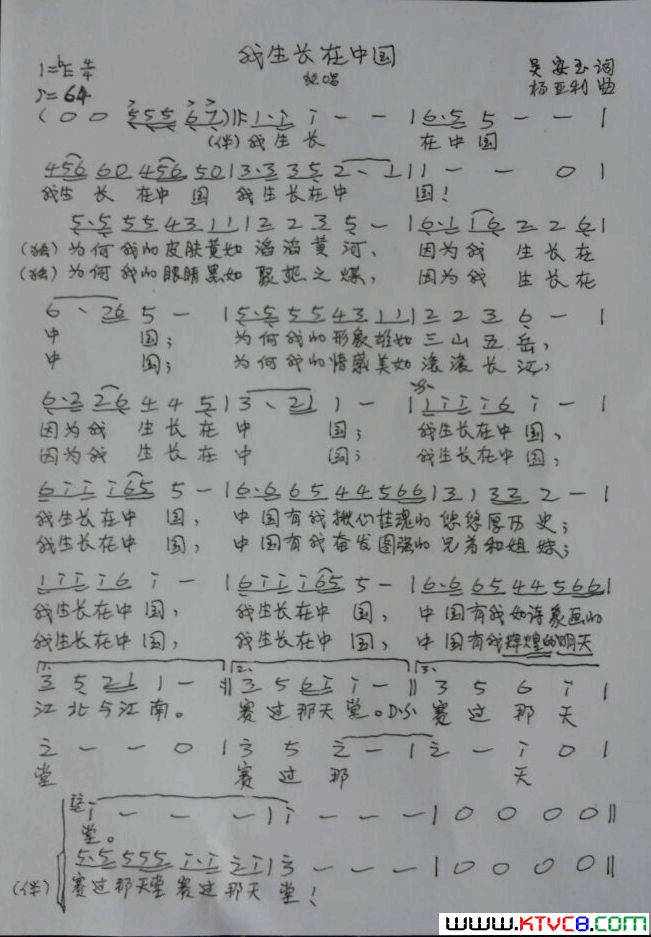 我生长在中国
1=♭E 4/4
独唱
吴安玉词
♪=64
杨亚利曲
(0 0 5 5 5 6 7)‖: 1·1 1 - - | 6·5 5 - - |
(伴)我生长 在中国
456 60 456 50 | 3·3 35 2、1 | 1 - - 0 |
我生长在中国 我生长在中 国!
5·5 55 43 11 | 2 2 3 5 - | 6·1 16 2 2 6 |
(独)为何我的皮肤黄如滔滔黄河, 因为我 生长在
(独)为何我的眼睛黑如 之煤, 因为我 生长在
6、26 5 - | 5·5 55 43 11 | 2 2 3 6 - |
中 国; 为何我的形象雄如三山五岳,
中 国; 为何我的情感美如滚滚长江,
6·2 26 4 4 5 | 3、21 1 - | 11116 1 - |
因为我 生长在中 国; 我生长在中国,
因为我 生长在中 国; 我生长在中国,
6111 65 5 - | 6·6 65 44 566 | 3 1 32 2 - |
我生长在中 国, 中国有我揪心挂魂的悠悠厚历史;
我生长在中 国, 中国有我奋发图强的兄弟和姐妹;
11116 1 - | 6111 65 5 - | 6·6 65 44 566 |
我生长在中国, 我生长在中国, 中国有我如诗象画的
我生长在中国, 我生长在中国, 中国有我辉煌的明天
1. 2. 3.
3 5 21 1 - :‖ 3 5 61 1 - ‖ 3 5 6 1 |
江北与江南。 赛过那天堂。D.S. 赛过那天
2 - - 0 | 3 5 2 - | 2 - 1 0 |
堂 赛过那 天
1 - - - | 1 - - - | 0 0 0 0 ‖
堂。
5·5 555 1·1 21 | 3 - - - | 0 0 0 0 ‖
(伴) 赛过那天堂赛过那天堂!
www.KTVC8.com